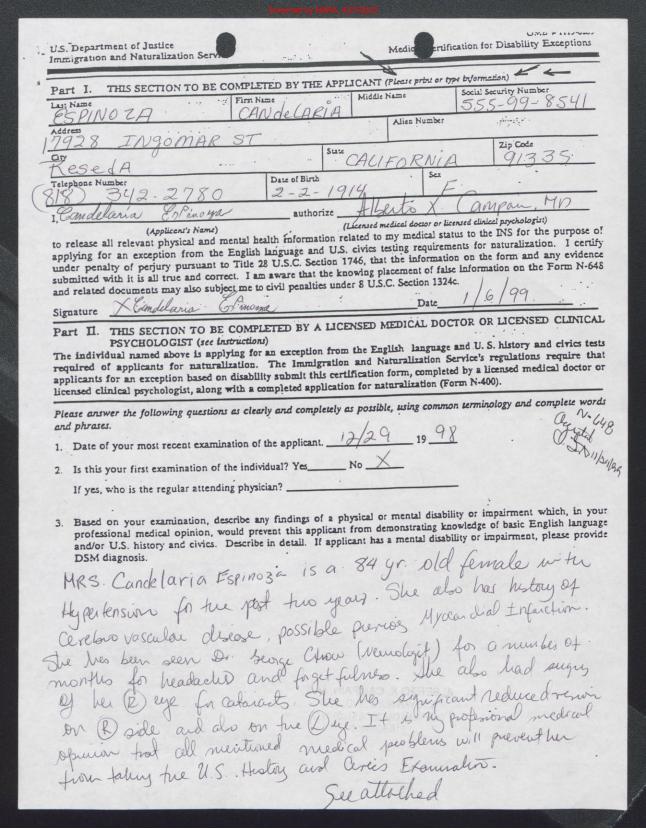 U.S. Department of Justice
Immigration and Naturalization Service
Medical Certification for Disability Exceptions
Part I. THIS SECTION TO BE COMPLETED BY THE APPLICANT (Please print or type information)
Last Name First Name Middle Name Social Security Number
ESPINOZA CANdeLARIA 555-99-8541
Address Alien Number
17928 INGOMAR ST
City State Zip Code
ReSedA CALIFORNIA 91335
Telephone Number Date of Birth Sex
(818) 342-2780 2-2-1914 F
I, Candelaria Espinoza authorize Alberto X Campan, MD
(Applicant's Name) (Licensed medical doctor or licensed clinical psychologist)
to release all relevant physical and mental health information related to my medical status to the INS for the purpose of
applying for an exception from the English language and U.S. civics testing requirements for naturalization. I certify
under penalty of perjury pursuant to Title 28 U.S.C. Section 1746, that the information on the form and any evidence
submitted with it is all true and correct. I am aware that the knowing placement of false information on the Form N-648
and related documents may also subject me to civil penalties under 8 U.S.C. Section 1324c.
Signature X Candelaria Espinoza Date 1/6/99
Part II. THIS SECTION TO BE COMPLETED BY A LICENSED MEDICAL DOCTOR OR LICENSED CLINICAL
PSYCHOLOGIST (see instructions)
The individual named above is applying for an exception from the English language and U. S. history and civics tests
required of applicants for naturalization. The Immigration and Naturalization Service's regulations require that
applicants for an exception based on disability submit this certification form, completed by a licensed medical doctor or
licensed clinical psychologist, along with a completed application for naturalization (Form N-400).
Please answer the following questions as clearly and completely as possible, using common terminology and complete words
and phrases.
N-648
1. Date of your most recent examination of the applicant. 12/29 19 98
2. Is this your first examination of the individual? Yes No X
If yes, who is the regular attending physician?
3. Based on your examination, describe any findings of a physical or mental disability or impairment which, in your
professional medical opinion, would prevent this applicant from demonstrating knowledge of basic English language
and/or U.S. history and civics. Describe in detail. If applicant has a mental disability or impairment, please provide
DSM diagnosis.
MRS. Candelaria Espinoza is a 84 yr. old female with
Hypertension for the past two years. She also has history of
Cerebro vascular disease, possible previous Myocardial Infarction.
She has been seen Dr. George Chow (neurologist) for a number of
months for headaches and forgetfulness. She also had surgery
of her (R) eye for cataracts. She has significant reduced vision
on (R) side and also on the (L) eye. It is my profesional medical
opinion that all mentioned medical problems will prevent her
from taking the U.S. History and Civics Examination.
See attached